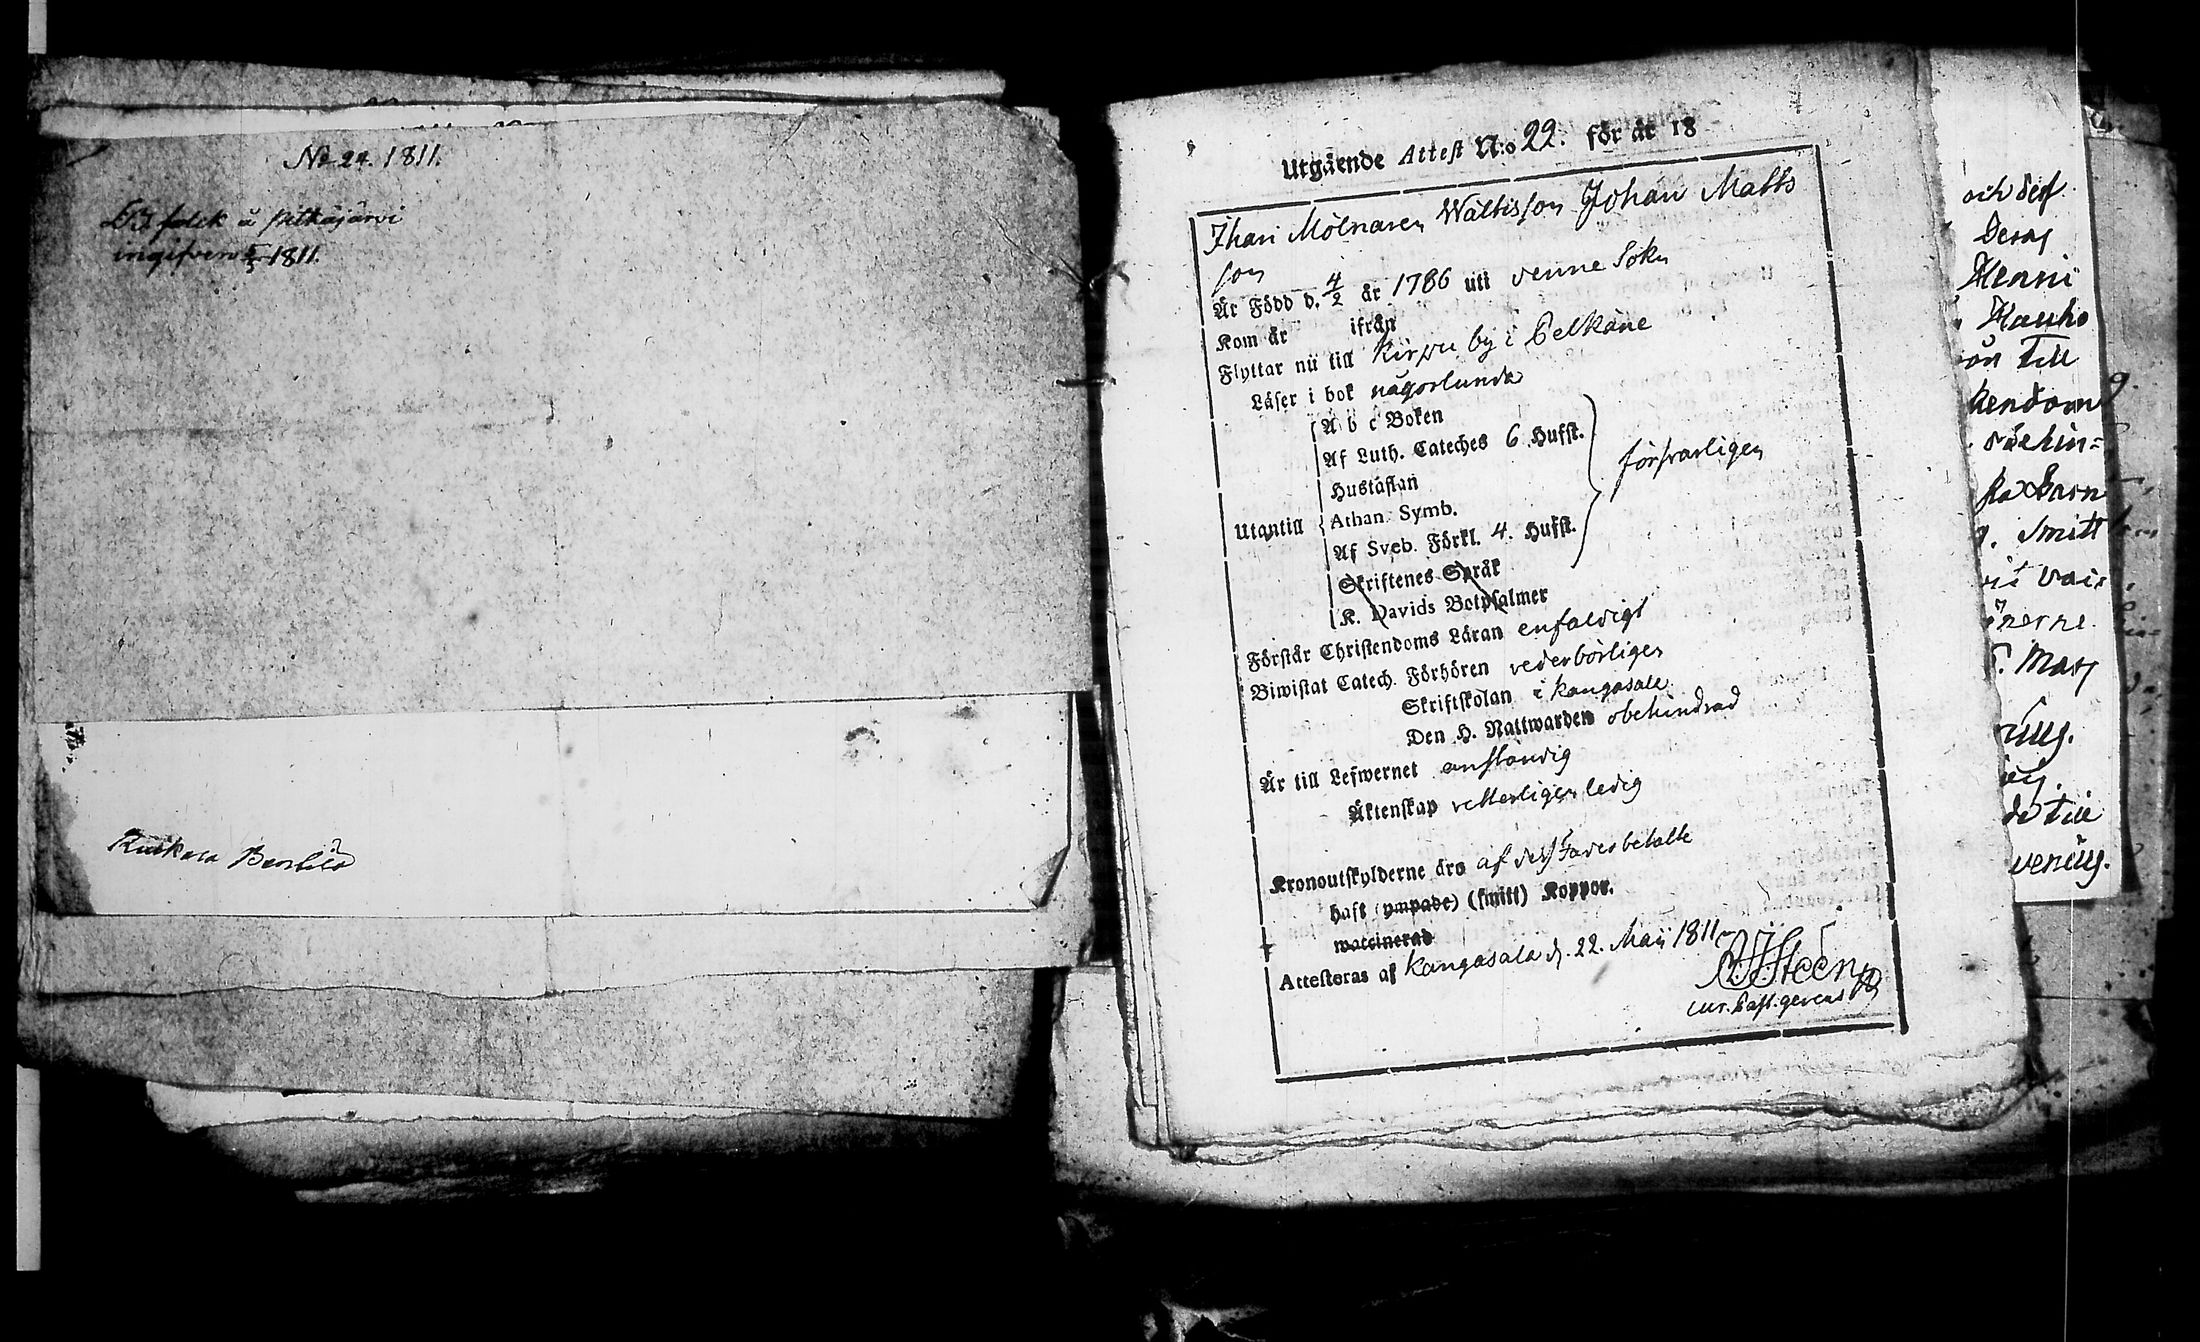 No 24. 1811.
folck å pitkäjärvi
ingifven 5/5 1811.
Kuikala Benlilä
Utgående Attest N:o 22. för år 18
Ihari Mölnaren Wältisson Johan Matts
son
Är Född d. 4/2 år 1786 uti denne Sokn
Kom år ifrån
Flyttar nu till Kirppu by i Pelkäne
Läser i bok någorlunda
A b c Boken
Af Luth. Cateches 6 Hufst.
Hustaflan
Utantill Athan. Symb. försvarligen
Af Sveb. Förkl. 4. Hufst.
Skriftenes Språk
K. Davids Botpsalmer
Förstår Christendoms Läran enfaldigt
Biwistat Catech. Förhören vederbörligen
Skriftskolan i Kangasala
Den H. Nattwarden obehindrad
Är till Lefwernet anständig
Äktenskap vetterligen ledig
Kronoutskylderne äro af dess Fader betalte
Haft (ympade) (smitt) Koppor.
waccinerad
Attesteras af Kangasala d. 22. Maij 1811
Steen
cur. Past. gerens
och dess
Deras
Henri
Hauho
on till
kendom
oäehin=
ska Barn
Smitt
nerne.
Mats
de till